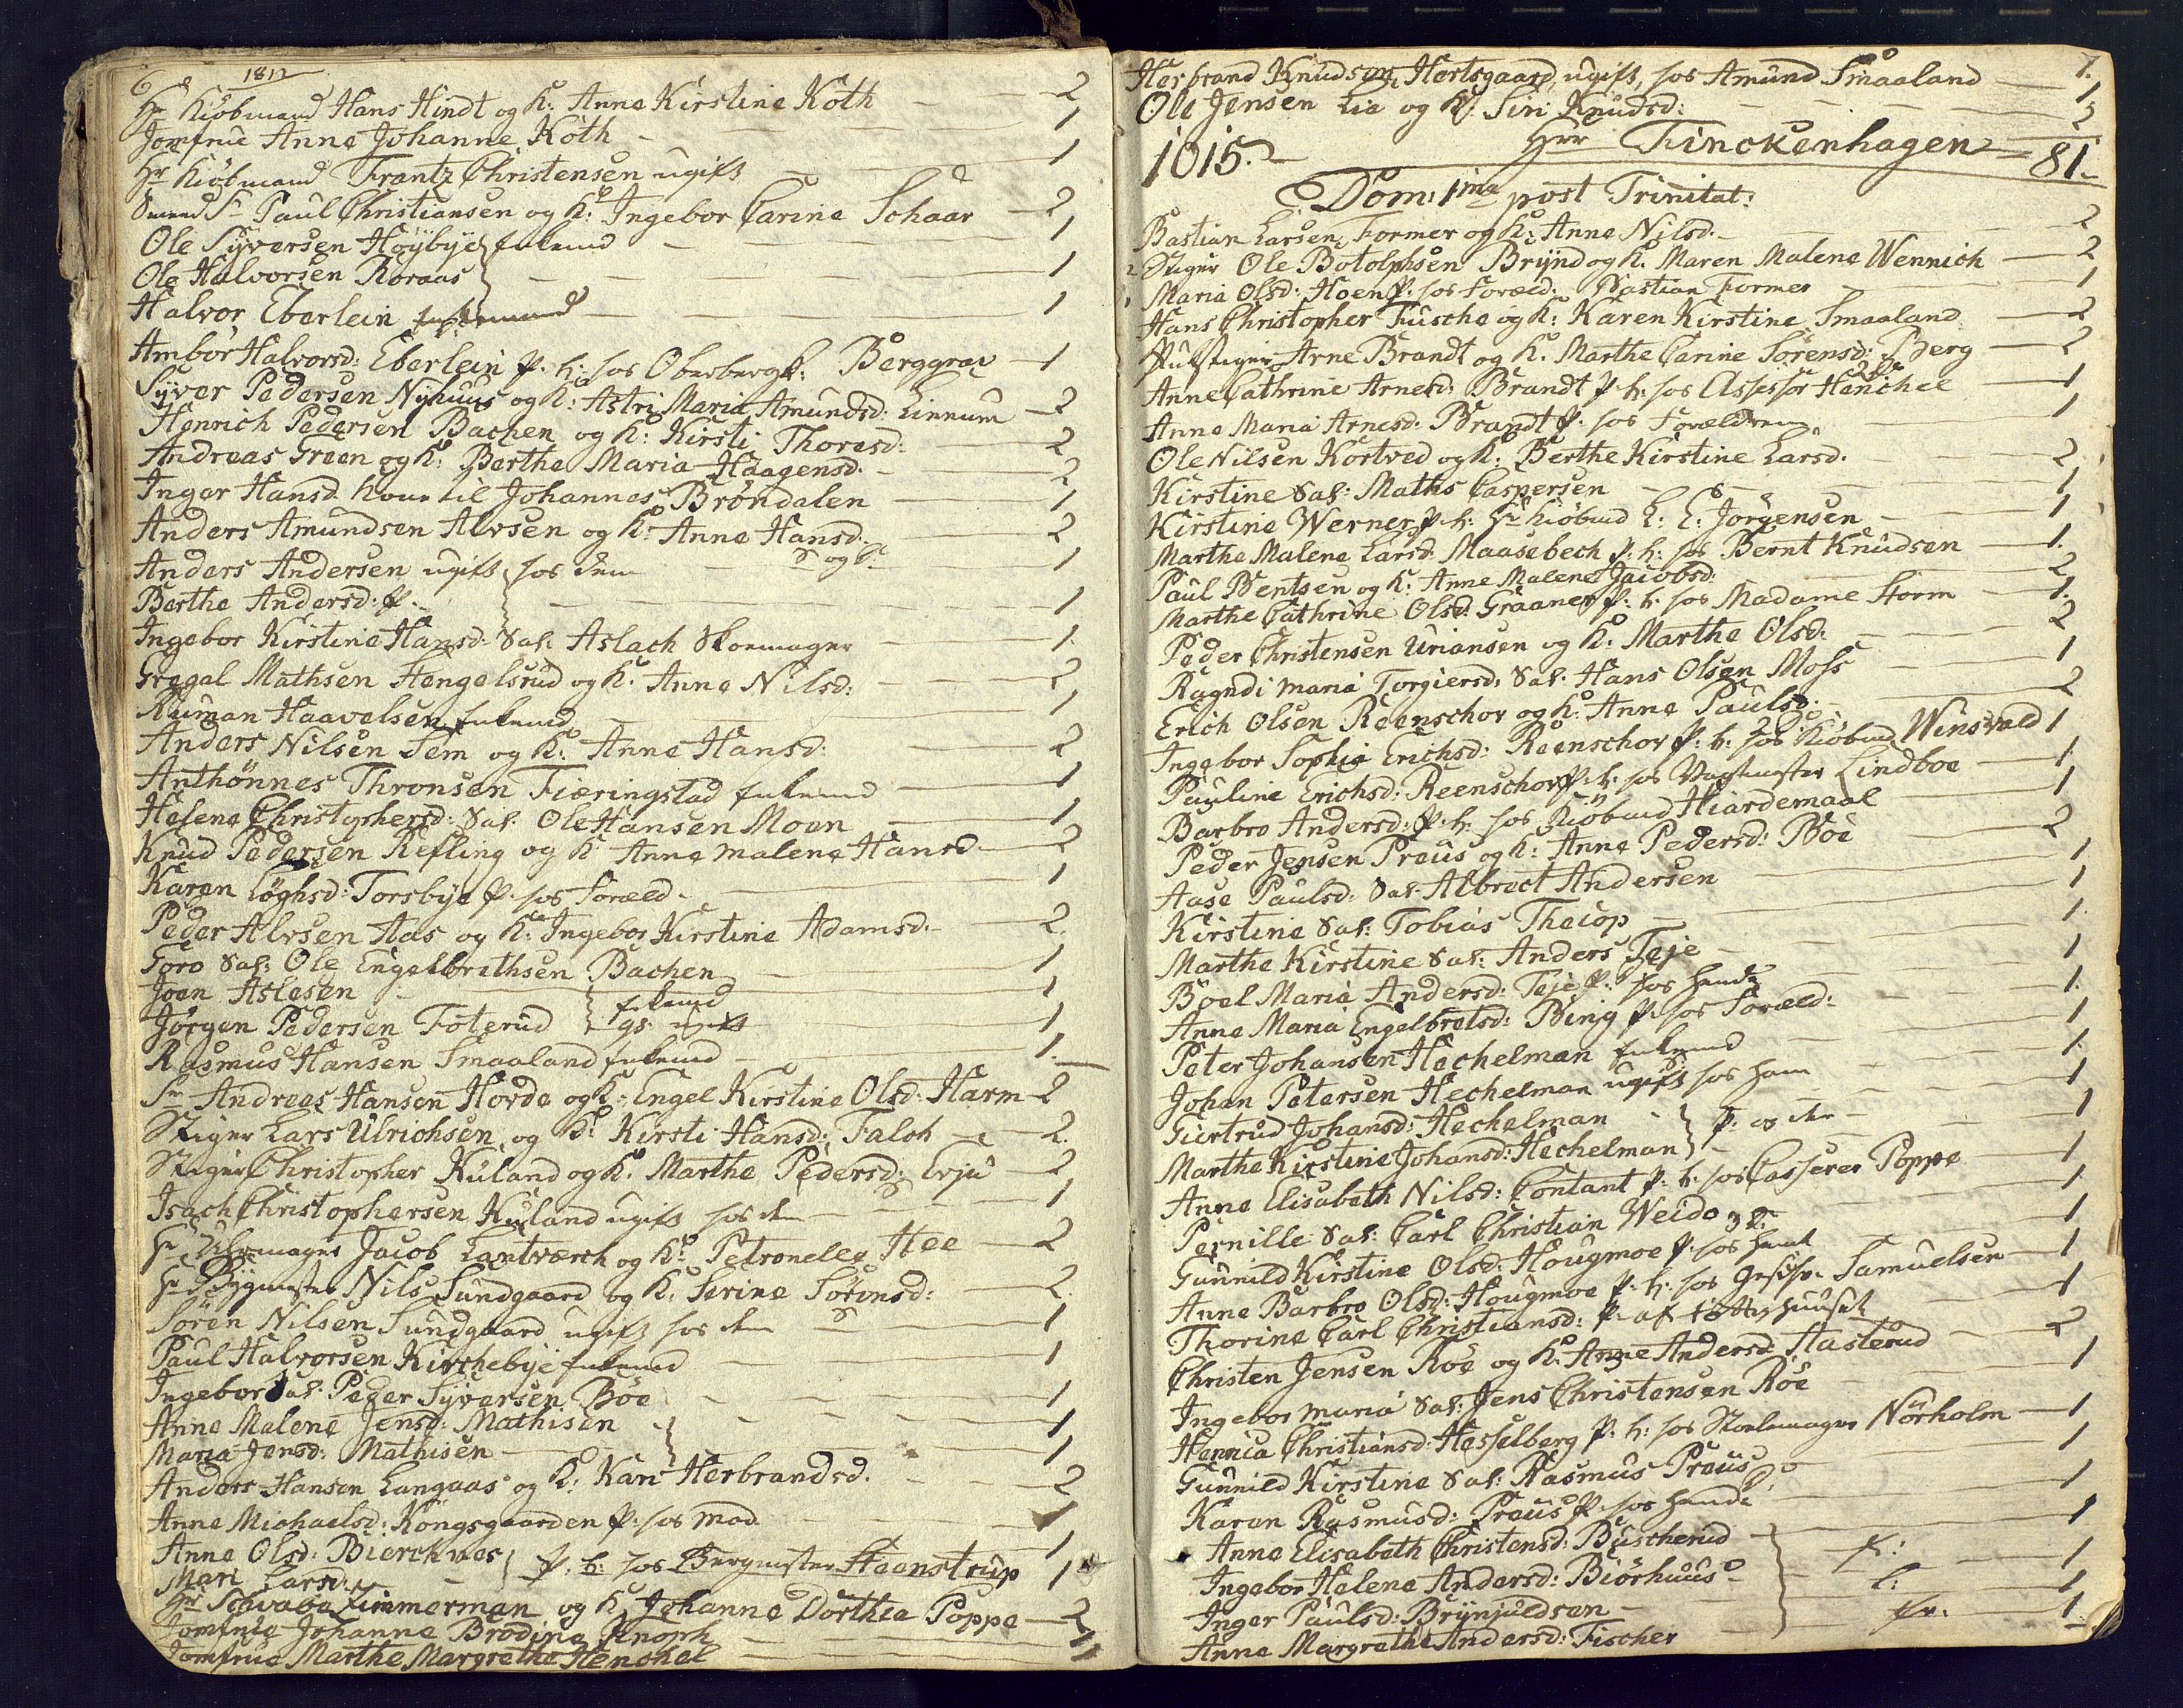 6
1812
Hr Kiøbmand Hans Hindt og K: Anne Kirstine Koth — 2
Jomfrue Anne Johanne Koth — 1
Hr Kiøbmand Frantz Christensen ugift — 1
Sr Paul Christiansen og K: Ingebor Carine Schaar — 2
Ole Syversen Høybye Enkemd — 1
Ole Halvorsen Roraas — 1
Halvor Eberlein — 1
Ambor Halvorsd: Eberlein P. h: hos Oberbergh: Berggrav — 1
Syver Pedersen Nyhuus og K: Astri Maria Amundsd: Linnum — 2
Henrich Pedersen Bachen og K: Kirsti Thoresd: — 2
Andreas Green og K: Berthe Maria Haagensd. — 2
Inger Hansd. Kone til Johannes Brøndalen — 1
Anders Amundsen Alvsen og K: Anne Hansd. — 2
Anders Andersen ugift hos dem S og D — 1
Berthe Andersd: P. — 1
Ingebor Kirstine Hansd: Sal: Aslach Skoemager — 1
Gregal Mathsen Stengelsrud og K: Anne Nilsd: — 2
Ruman Haavelsen Enkemd — 1
Anders Nilsen Sem og K: Anne Hansd: — 2
Anthønnes Thronsen Fiæringstad Enkemd — 1
Helene Christophersd: Sal: Ole Hansen Moen — 1
Knud Pedersen Refling og K Anne Malene Hansd. — 2
Karen Løghsd: Torsbye P. hos Foræld. — 1
Peder Alvsen Aas og K: Ingebor Kirstine Adamsd. — 2.
Goro Sal: Ole Engelbrethsen Bachen — 1
Joen Aslesen Enkemd — 1
Jørgen Pedersen Foterud gs: ugift — 1
Rasmus Hansen Smaaland Enkemd — 1.
Sr Andreas Hansen Horde og K: Engel Kirstine Olsd: Harm — 2
Stiger Lars Ulrichsen og K: Kirsti Hansd: Falch — 2.
Stiger Christopher Kuland og K: Marthe Pedersd: Evju — 2
Isach Christophersen Kuland ugift hos dem S — 1
Hr Uhrmager Jacob Lantværch og K: Petronelle Hee — 2
Hr Bygmester Nils Sundgaard og K: Serine Sørensd: — 2.
Søren Nilsen Sundgaard ugift hos dem S — 1
Paul Halvorsen Kirchebye Enkemd — 1
Ingebor Sal: Peder Syversen Bøe — 1
Anne Malene Jensd: Mathisen — 1
Maria Jensd: Mathisen — 1
Anders Hansen Langaas og K: Kari Herbrandsd. — 2
Anne Michaelsd: Kongsgaarden P. hos Mod. — 1
Anne Olsd: Bierchnes — 1
Mari Larsd: P. h: hos Bergmester Steenstrup 1
Hr Zimmerman og K: Johanne Dorthea Poppe — 2
Jomfrue Johanne Brodina Knoph — 1
Jomfrue Marthe Margrethe Henchel — 1
7.
Herbrand Knudsen Hertsgaard ugift, hos Amund Smaaland — 1
Ole Jensen Lia og K: Siri Knudsd: — 2
1015. Hrr Finckenhagen — 81.
Dom: 1ma post Trinitat:
Bastian Larsen Former og K: Anne Nilsd. — 2
Stiger Ole Botolphsen Brynd og K. Maren Malene Wennich — 2
Maria Olsd: Hoen P. hos Foræld: Bastian Former — 1
Hans Christopher Fusche og K: Karen Kirstine Smaaland — 2
Arne Brandt og K. Marthe Carine Sørensd: Berg — 2
Anne Cathrine Arnesd: Brandt P h: hos Assessor Henchel — 1
Anne Maria Arnesd: Brandt P. hos Forældrene — 1
Ole Nilsen Kortved og K: Berthe Kirstine Larsd. — 2
Kirstine Sal: Maths Caspersen — 1
Kirstine Werner P. h: Hr Kiøbmd L: C: Jørgensen — 1
Marthe Malene Larsd: Maasebech P. h: hos Bernt Knudsen — 1.
Paul Bentsen og K: Anne Malene Jacobsd: — 2
Marthe Cathrine Olsd: Graaner P: h: hos Madame Storm — 1.
Peder Christensen Uriansen og K: Marthe Olsd. — 2
Ragndi Maria Torgiersd: Sal: Hans Olsen Moss — 1
Erich Olsen Reenschov og K: Anne Paulsd. — 2
Ingebor Sophie Erichsd: Reenschov P: h: hos Kiøbmd Winsvald 1
Pauline Erichsd: Reenschov P: h: hos Vagtmester Lindboe — 1.
Barbro Andersd: P. h: hos Kiøbmd Hiardemaal — 1
Peder Jensen Preus og K: Anne Pedersd: Bøe — 2
Aase Paulsd: Sal: Albrect Andersen — 1
Kirstine Sal: Tobias Theiop — 1
Marthe Kirstine Sal: Anders Teje — 1.
Boel Maria Andersd: Teje P. hos hende — 1
Anne Maria Engelbretsd: Bing P. hos Foræld: — 1.
Peter Johansen Hechelman Enkemd — 1
Johan Petersen Hechelman ugift S: hos ham — 1.
Giertrud Johansd: Hechelman — 1
Marthe Kirstine Johansd: Hechelman — 1
Anne Elisabeth Nilsd: Contant P. h: hos Casserer Poppe — 1
Pernille Sal: Carl Christian Weido — 1
Gunnild Kirstine Olsd: Hougmoe P. hos hende — 1
Anne Barbro Olsd: Hougmoe P. h: hos Samuelsen — 1
Thorine Carl Christiansd: P. af huuset — 1
Christen Jensen Roe og K: Anne Andersd: Hasterud — 2
Ingebor Maria Sal: Jens Christensen Røe — 1
Hennica Christiansd: Hesselberg P. h: hos Stolemager Nørholm — 1
Gunnild Kirstine Sal: Rasmus Preus — 1
Karen Rasmusd: Preus P. hos hende — 1
Anne Elisabeth Christensd: Buscherud — 1
Ingebor Helene Andersd: Biørhuus — 1
Inger Paulsd: Brynjuldsen — 1
Anne Margrethe Andersd: Fischer — 1.